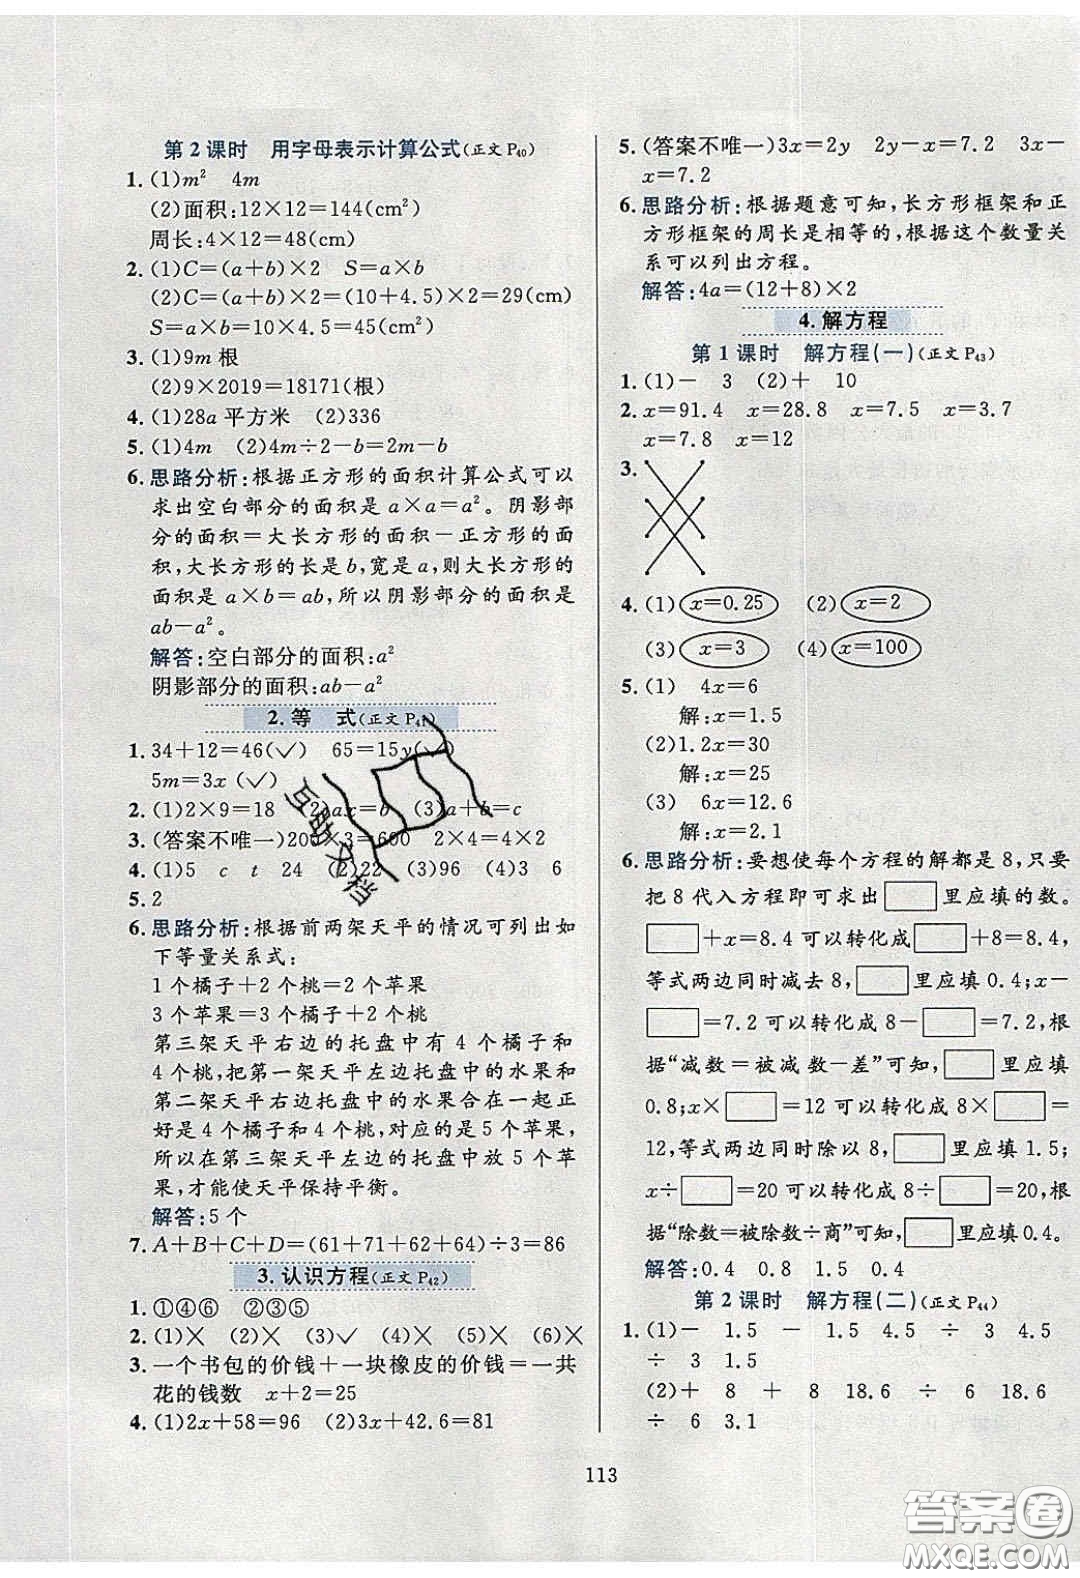 第2课时　用字母表示计算公式(正文P40)
1. (1)m²　4m
(2)面积:12×12=144(cm²)
周长:4×12=48(cm)
2. (1)C=(a+b)×2　S=a×b
(2)C=(a+b)×2=(10+4.5)×2=29(cm)
S=a×b=10×4.5=45(cm²)
3. (1)9m根
(2)9×2019=18171(根)
4. (1)28a平方米　(2)336
5. (1)4m　(2)4m÷2-b=2m-b
6. 思路分析:根据正方形的面积计算公式可以
求出空白部分的面积是a×a=a²。阴影部
分的面积=大长方形的面积-正方形的面
积,大长方形的长是b,宽是a,则大长方形的
面积是a×b=ab,所以阴影部分的面积是
ab-a²。
解答:空白部分的面积:a²
阴影部分的面积:ab-a²
2.等　式(正文P41)
1. 34+12=46(✓)　65=15y(✓)
5m=3x(✓)
2. (1)2×9=18　(2)ax=b　(3)a+b=c
3. (答案不唯一)200×3=600　2×4=4×2
4. (1)5　c　t　24　(2)22　(3)96　(4)3　6
5. 2
6. 思路分析:根据前两架天平的情况可列出如
下等量关系式:
1个橘子+2个桃=2个苹果
3个苹果=3个橘子+2个桃
第三架天平右边的托盘中有4个橘子和
4个桃,把第一架天平左边托盘中的水果和
第二架天平右边托盘中的水果合在一起正
好是4个橘子和4个桃,对应的是5个苹果,
所以在第三架天平左边的托盘中放5个苹
果,才能使天平保持平衡。
解答:5个
7. A+B+C+D=(61+71+62+64)÷3=86
3.认识方程(正文P42)
1. ①④⑥　②③⑤
2. (1)×　(2)×　(3)✓　(4)×　(5)×　(6)×
3. 一个书包的价钱+一块橡皮的价钱=一共
花的钱数　x+2=25
4. (1)2x+58=96　(2)3x+42=81
5. (答案不唯一)3x=2y　2y-x=7.2　3x-
x=7.2
6. 思路分析:根据题意可知,长方形框架和正
方形框架的周长是相等的,根据这个数量关
系可以列出方程。
解答:4a=(12+8)×2
4.解方程
第1课时　解方程(一)(正文P43)
1. (1)-　3　(2)+　10
2. x=91.4　x=28.8　x=7.5　x=3.7
x=7.8　x=12
3.
4. (1)x=0.25　(2)x=2
(3)x=3　(4)x=100
5. (1)　4x=6
解:x=1.5
(2)1.2x=30
解:x=25
(3)　6x=12.6
解:x=2.1
6. 思路分析:要想使每个方程的解都是8,只要
把8代入方程即可求出□里应填的数。
□+x=8.4可以转化成□+8=8.4,
等式两边同时减去8,□里应填0.4;x-
□=7.2可以转化成8-□=7.2,根
据“减数=被减数-差”可知,□里应填
0.8;x×□=12可以转化成8×□=
12,等式两边同时除以8,□里应填1.5;
x÷□=20可以转化成8÷□=20,根
据“除数=被除数÷商”可知,□里应填0.4。
解答:0.4　0.8　1.5　0.4
第2课时　解方程(二)(正文P44)
1. (1)-　1.5　-　1.5　4.5　÷　3　4.5
÷　3　1.5
(2)+　8　+　8　18.6　÷　6　18.6
÷　6　3.1
113
互助文档
答案圈
MXQE.COM